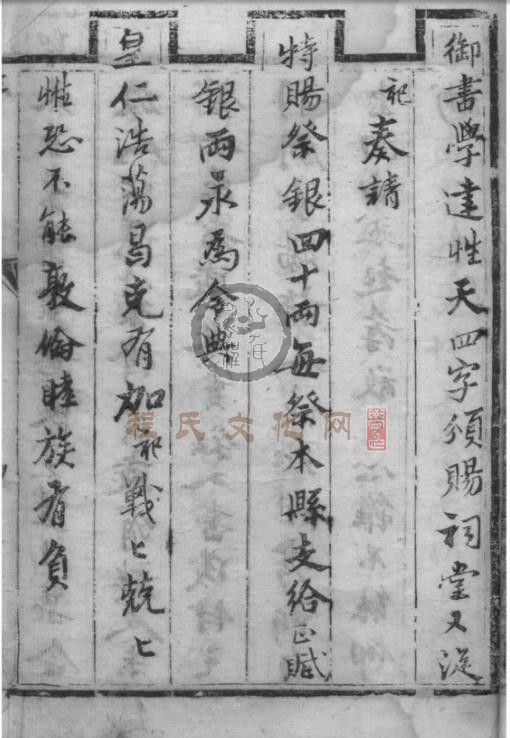 御書學達性天四字頒賜祠堂又從
祀奏請
特賜祭銀四十兩每祭本縣支給正賦
銀兩永為令典
皇仁浩蕩曷克有加祀戰〻兢〻
惟恐不能敦倫睦族有負
程氏文化网